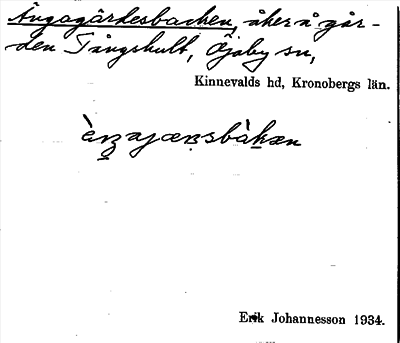 Ängagärdesbacken, åker å går-
den Tångshult, Öjaby sn,
Kinnevalds hd, Kronobergs län.
Erik Johannesson 1934.